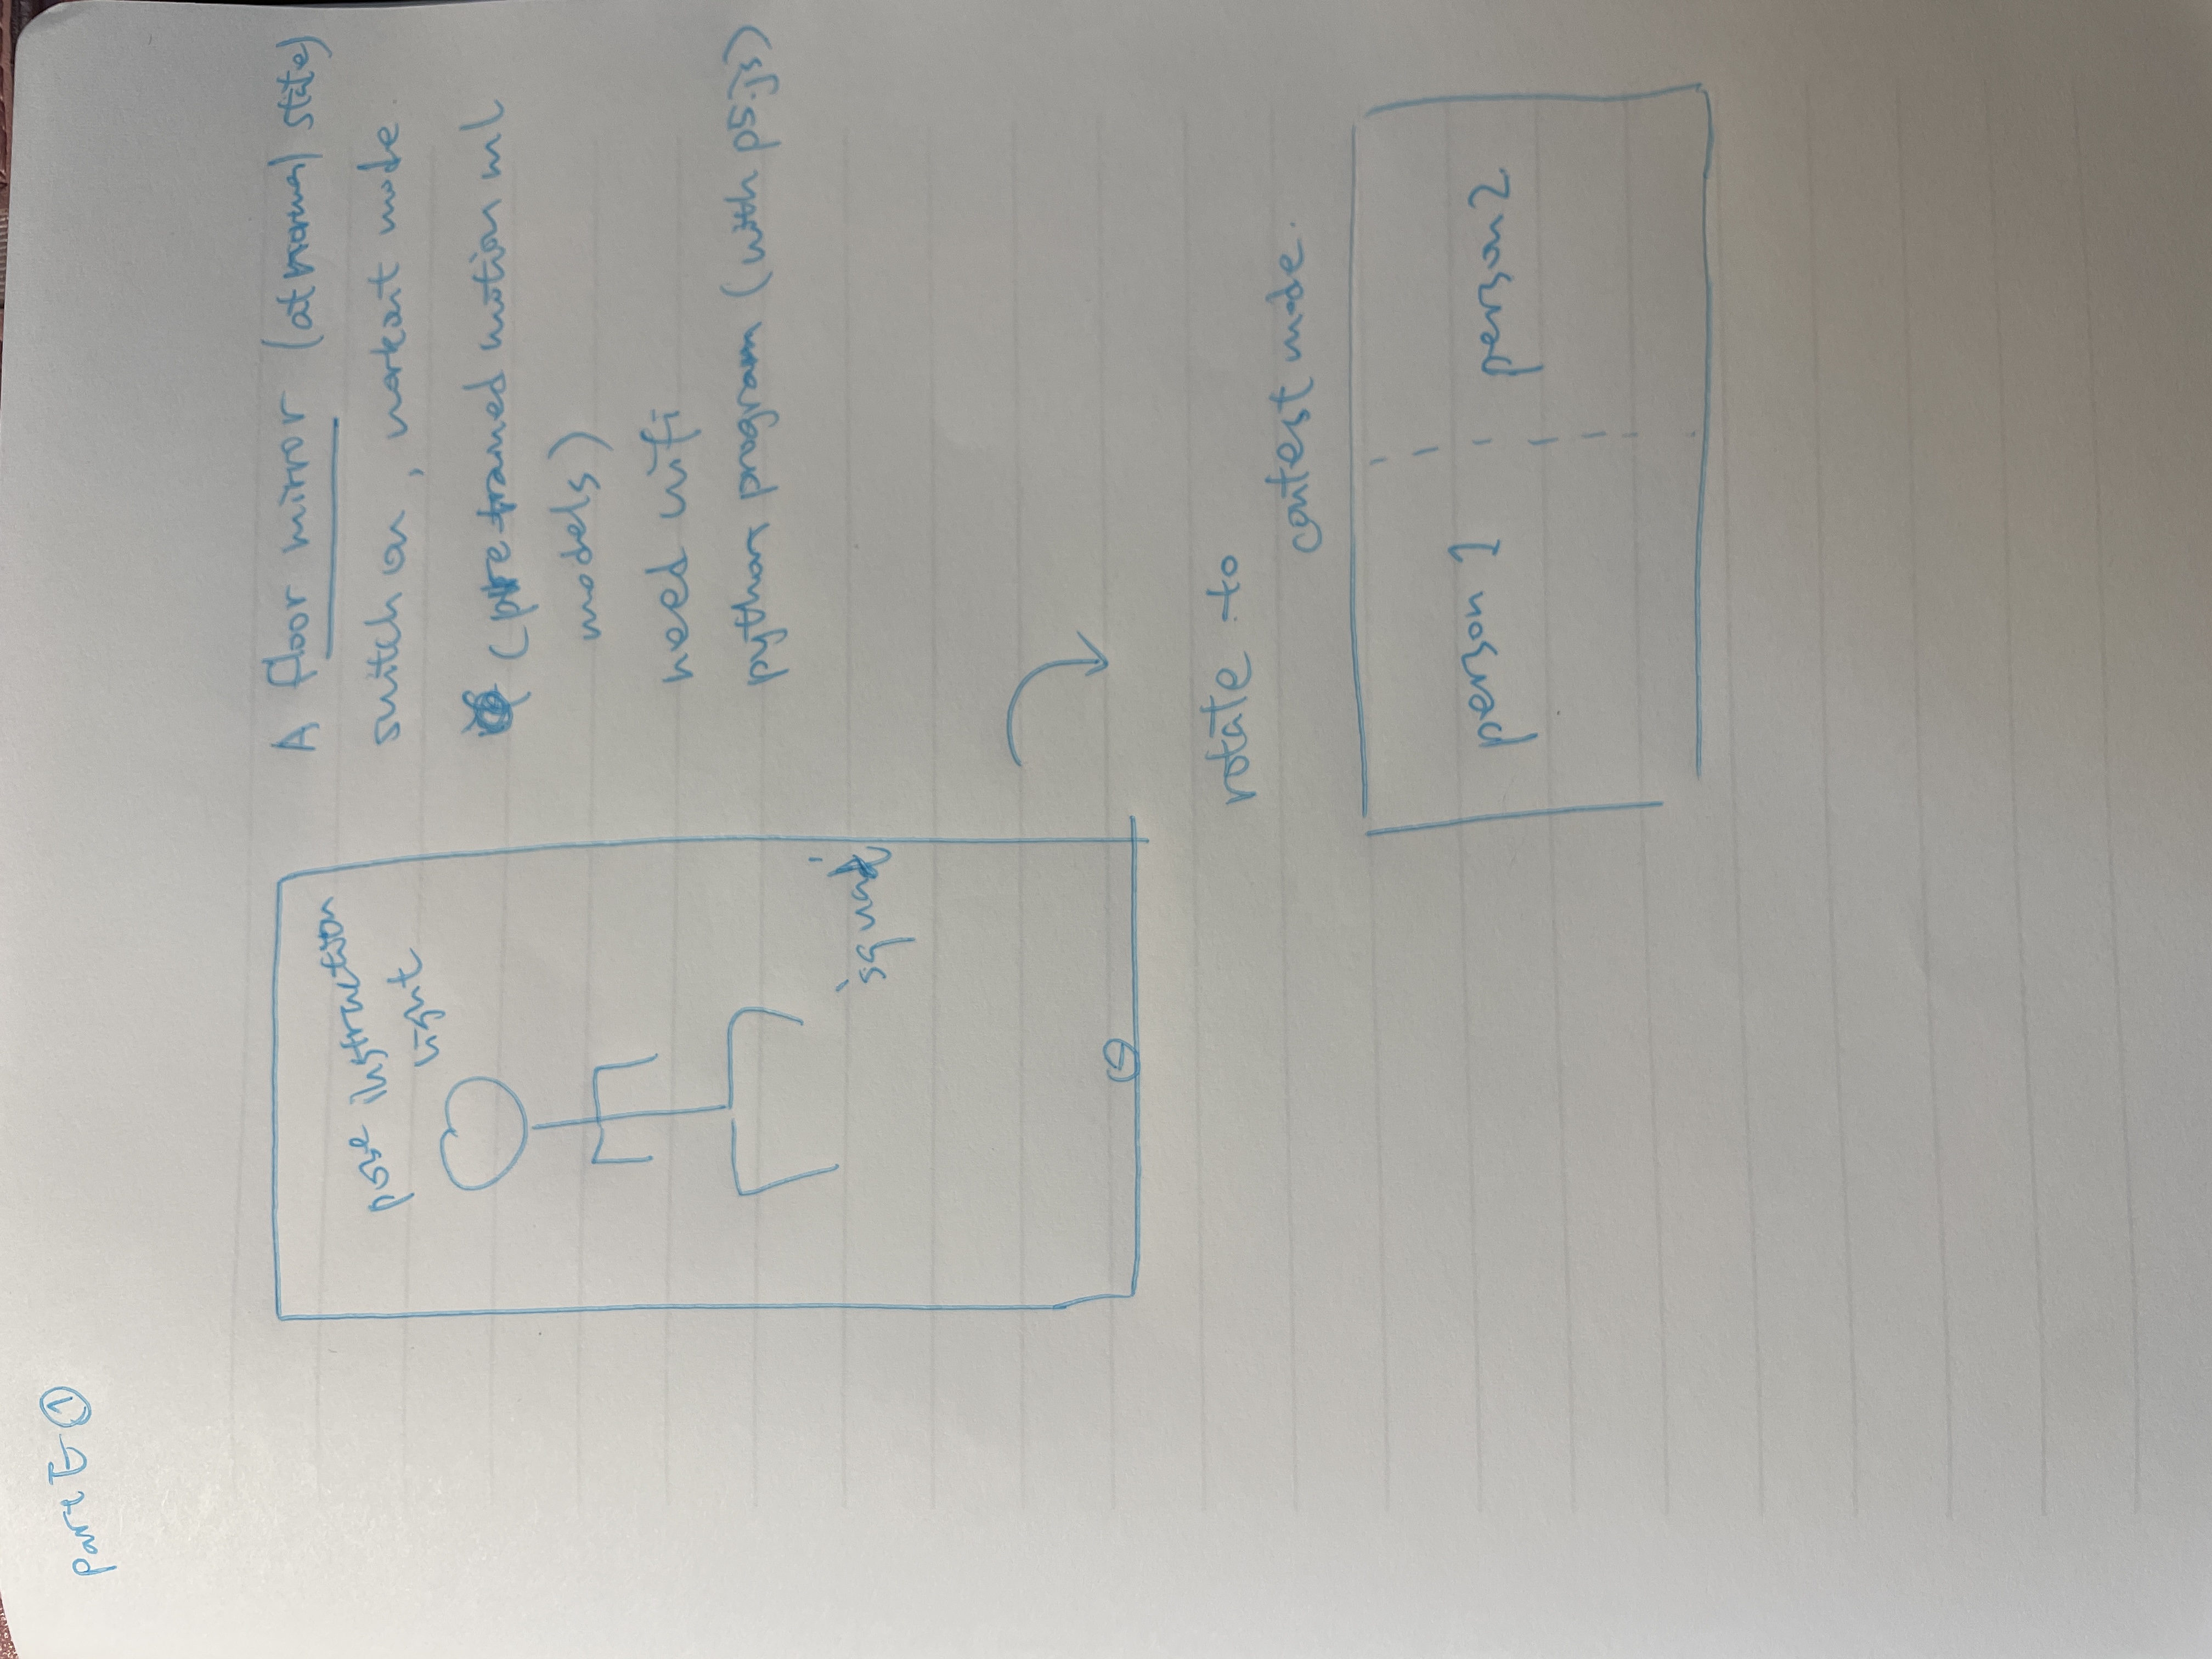 Part E ①
pose instruction
light
'squat'
A floor mirror (at normal state)
switch on, workout mode.
(pre trained motion ml
models)
need wifi
python program (with p5.js)
rotate to
contest mode.
person 1
person 2